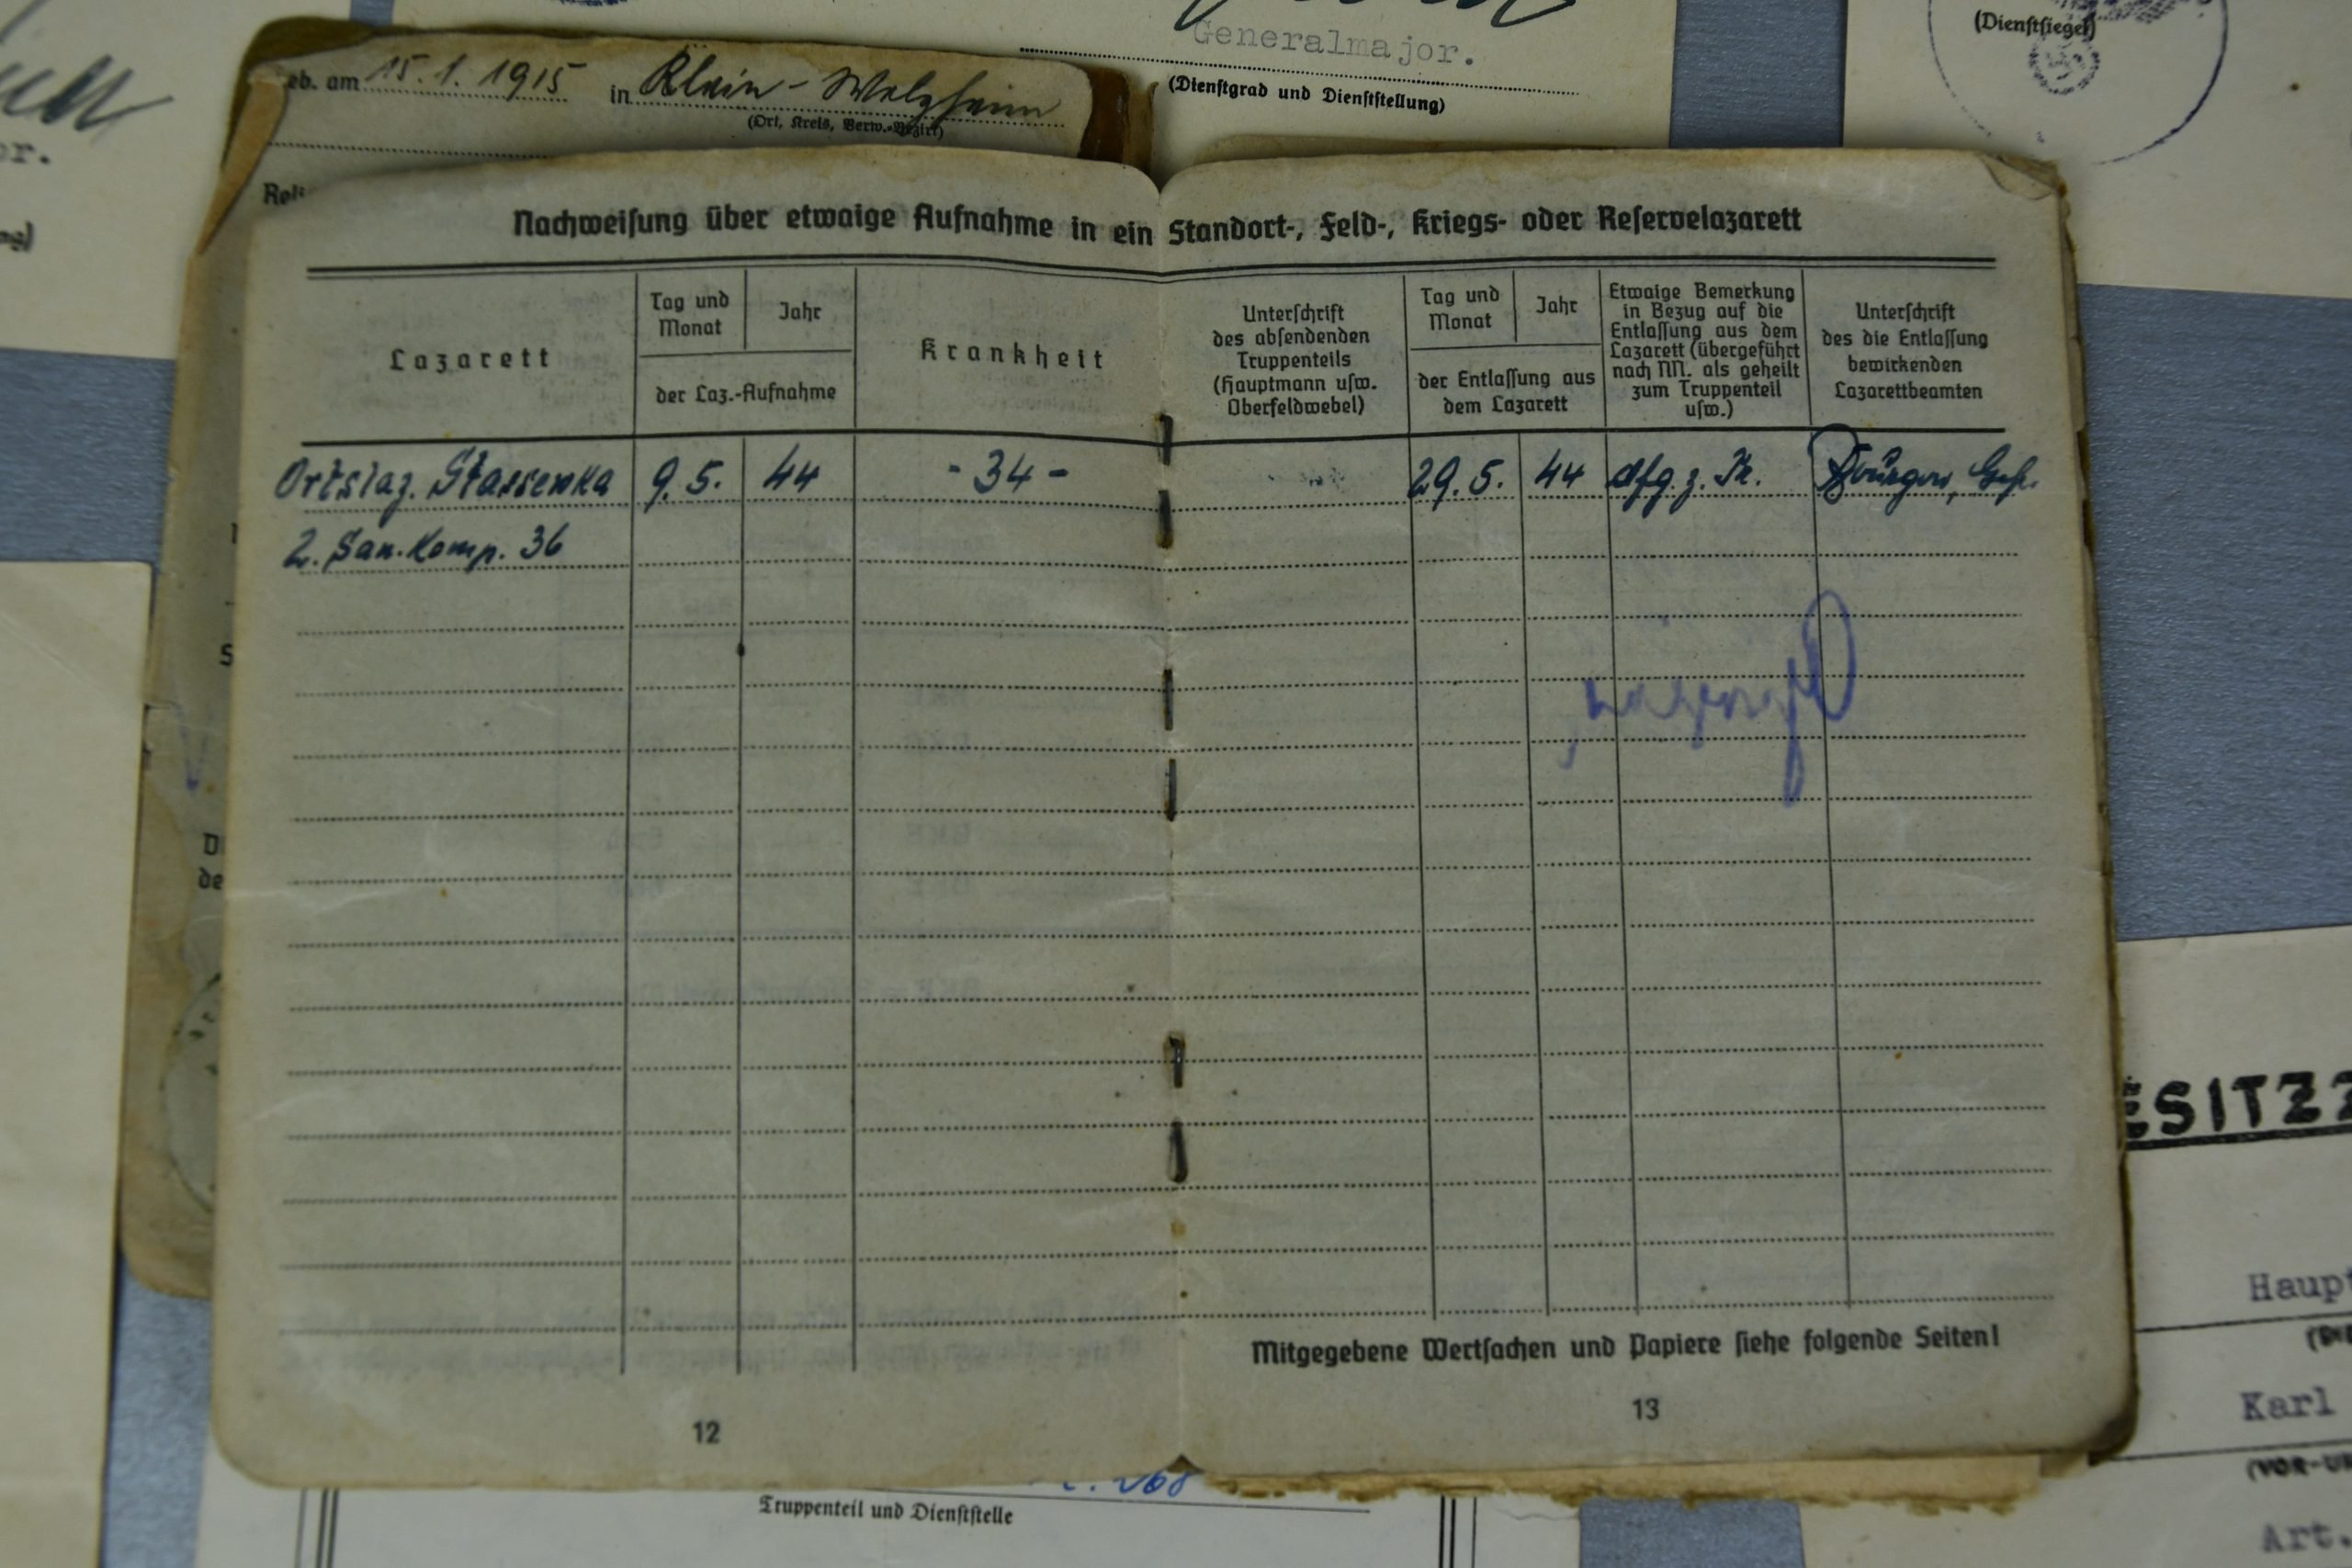 Generalmajor.
(Dienstgrad und Dienststellung)
(Dienstsiegel)
eb. am 15.1.1915 in Klein-Welzheim
(Ort, Kreis, Verw.-Bezirk)
or.
Reli
Nachweisung über etwaige Aufnahme in ein Standort-, Feld-, Kriegs- oder Reservelazarett
Lazarett
Tag und
Monat
Jahr
der Laz.-Aufnahme
Krankheit
Unterschrift
des absendenden
Truppenteils
(Hauptmann usw.
Oberfeldwebel)
Tag und
Monat
Jahr
der Entlassung aus
dem Lazarett
Etwaige Bemerkung
in Bezug auf die
Entlassung aus dem
Lazarett (übergeführt
nach NN. als geheilt
zum Truppenteil
usw.)
Unterschrift
des die Entlassung
bewirkenden
Lazarettbeamten
Ortslaz. Stassenka 9.5. 44 -34- 29.5. 44 dfg. z. Tr.
2. San.Komp. 36
Mitgegebene Wertsachen und Papiere siehe folgende Seiten!
12
13
ESITZZ
Haupt
Karl
(VOR-U
Art.
Truppenteil und Dienststelle